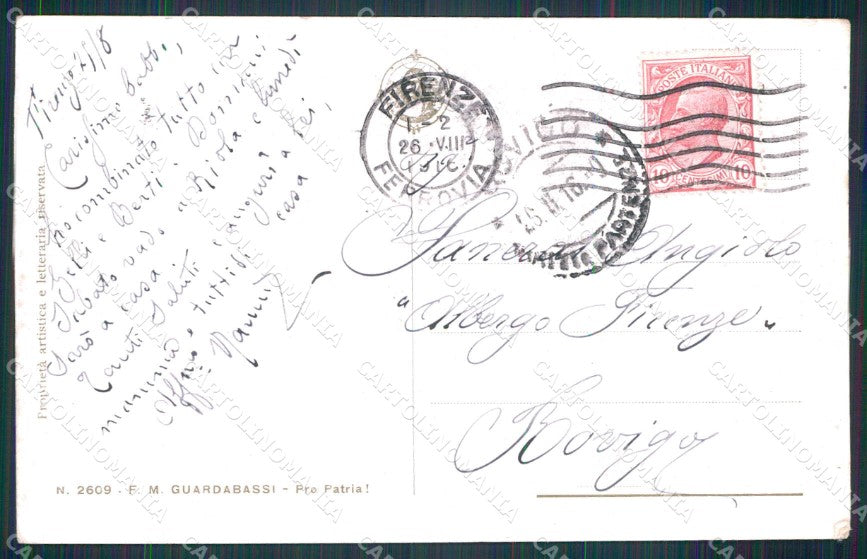 Firenze 25/8
Carissimo babbo,
ho combinato tutto con
Betti e Berti. Borrioni
Sabato vado a Riola e lunedì
sarò a casa
Tanti saluti e auguri a lei,
mamma e tutti di casa
Aff.mo Nanni
Proprietà artistica e letteraria riservata
N. 2609 - F. M. GUARDABASSI - Pro Patria!
FIRENZE
1-2
26 . VIII
1916
FERROVIA
ROVIGO
POSTE ITALIANE
10 CENTESIMI 10
Angiolo
"Albergo Firenze"
Rovigo
CARTOLINOMANIA